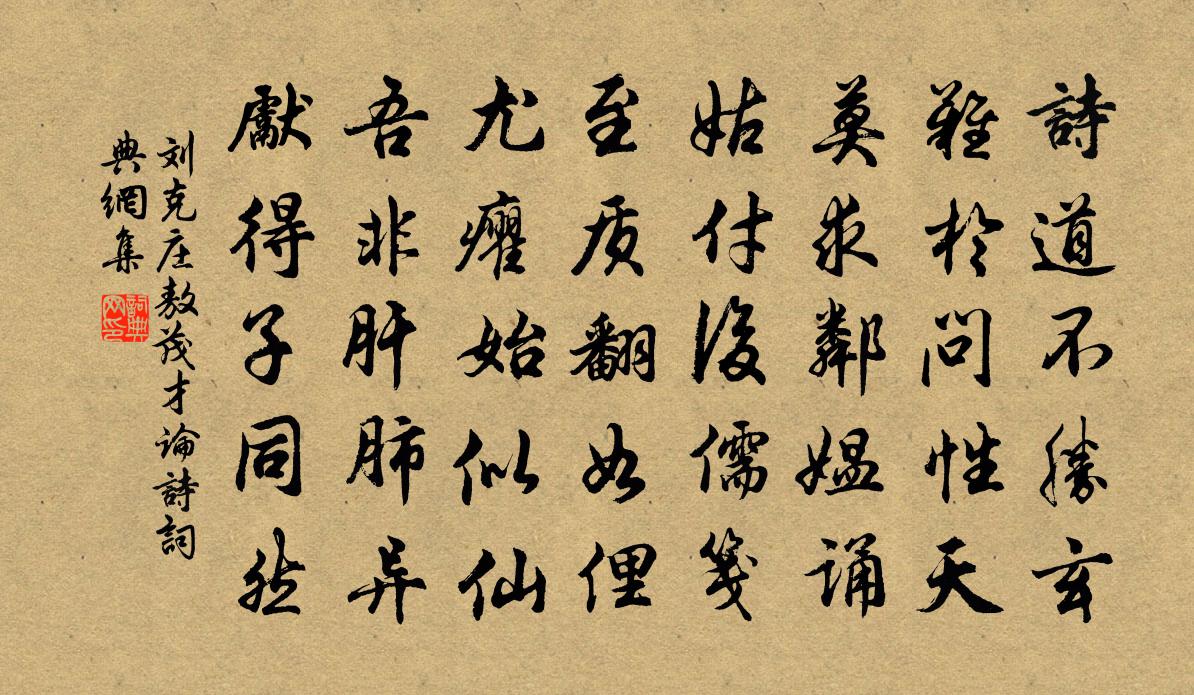 詩道不勝玄
難於問性天
莫求鄰媼誦
姑付後儒箋
至质翻如俚
尤癯始似仙
吾非肝肺异
獻得子同然
刘克庄敖茂才論詩詞
典網集
詞典
网印